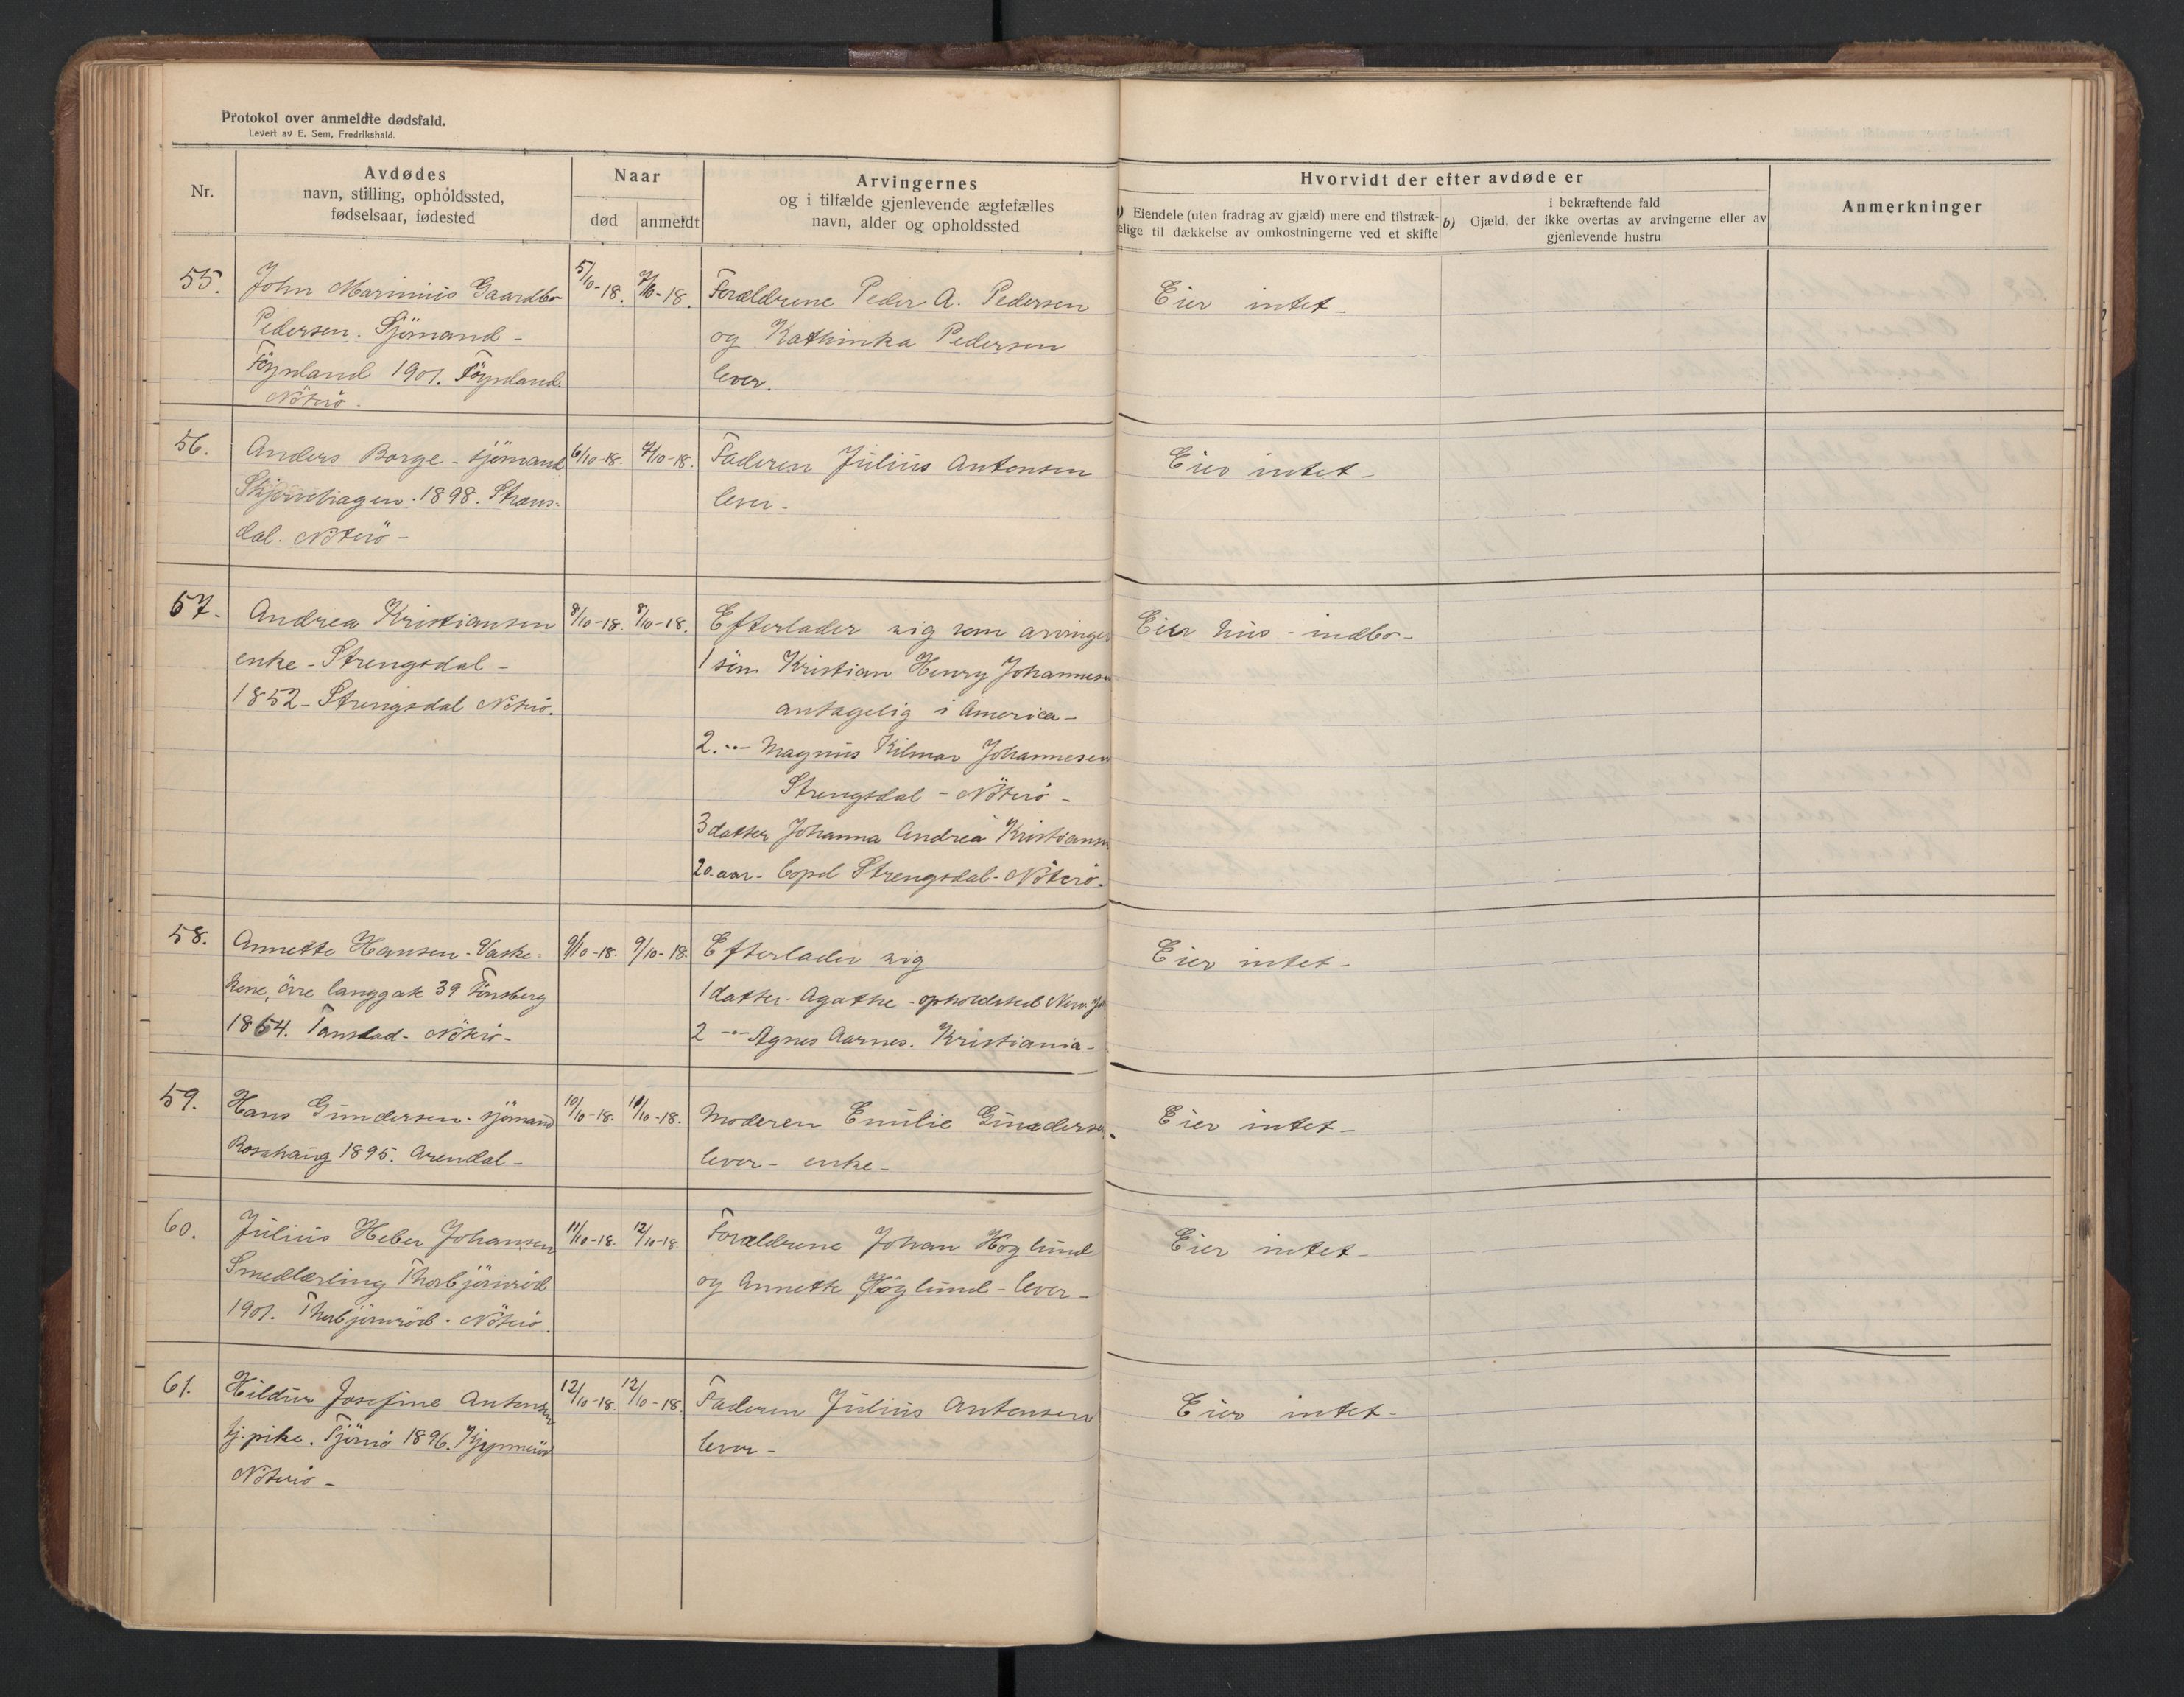 Protokol over anmeldte dødsfald.
Levert av E. Sem, Fredrikshald.
Nr.
Avdødes
navn, stilling, opholdssted,
fødselsaar, fødested
Naar
død
anmeldt
Arvingernes
og i tilfælde gjenlevende ægtefælles
navn, alder og opholdssted
Hvorvidt der efter avdøde er
a) Eiendele (uten fradrag av gjæld) mere end tilstræk-
kelige til dækkelse av omkostningerne ved et skifte
i bekræftende fald
b) Gjæld, der ikke overtas av arvingerne eller av
gjenlevende hustru
Anmerkninger
55. John Marinius Gaardbo 5/10-18. 7/10-18. Forældrene Peder A. Pedersen Eier intet-
Pedersen. Sjömand - og Kathinka Pedersen
Föynland 1901. Föynland. lever.
Nöterö.
56. Anders Borge - sjömand 6/10-18. 7/10-18. Faderen Julius Antonsen Eier intet-
1898. Strens- lever-
dal. Nöterö-
57. Andrea Kristiansen 8/10-18. 8/10-18. Efterlader sig som arvinger Eier hus - indbo-
enke - Strengsdal - 1 sön Kristian Henry Johannesen
1852 - Strengsdal Nöterö. antagelig i America-
2. -"- Magnus Hilmar Johannesen
Strengsdal - Nöterö -
3 datter Johanna Andrea Kristiansen
20. aar - bopel Strengsdal - Nöterö-
58. Annette Hansen - Vaske- 9/10-18. 9/10-18. Efterlader sig Eier intet-
kone, övre langgate 39 Tönsberg 1 datter - Agathe - opholdsted New
1864. Tanstad - Nöterö- 2 -"- Agnes Aarnes. Kristiania-
59. Hans Gundersen - sjömand 10/10-18. 10/10-18. Moderen Emilie Gundersen. Eier intet-
Rosshaug 1895. Arendal - lever - enke-
60. Julius Heber Johansen 11/10-18. 12/10-18. Forældrene Johan Höglund Eier intet-
Smedlærling Thorbjörnröd og Annette Höglund - lever-
1901. Thorbjörnröd. Nöterö.
61. Hildur Josefine Antonsen 12/10-18. 12/10-18. Faderen Julius Antonsen Eier intet-
tj. pike. Tjömö 1896. lever-
Nöterö -